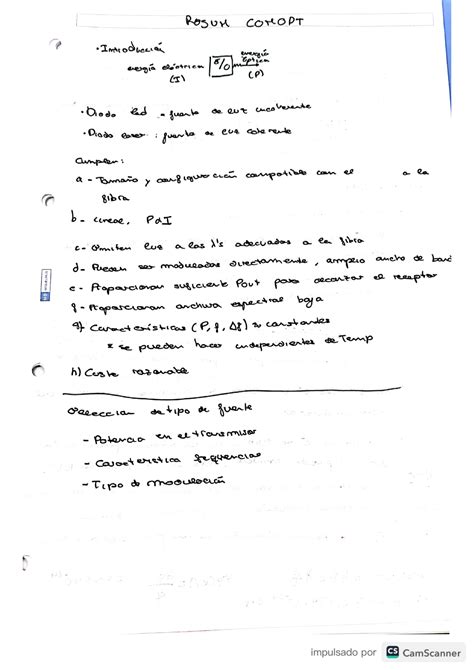 RESUM COMOPT
· Introducción
energía eléctrica E/O energía óptica
(I) (P)
· Diodo led → fuente de luz incoherente
· Diodo laser : fuente de luz coherente
Cumplen:
a - Tamaño y configuración compatible con el a la
fibra
b - Lineal, P α I
c - Emiten luz a las λ's adecuadas a la fibra
d - Pueden ser moduladas directamente, amplio ancho de band
e - Proporcionan suficiente Pout para alcanzar el receptor
f - Proporcionan anchura espectral baja
g) Características (P, f, Δf) ≈ constantes
* se pueden hacer independientes de Temp
h) Coste razonable
Selección de tipo de fuente
- Potencia en el transmisor
- Característica frequencias
- Tipo de modulación
impulsado por CS CamScanner